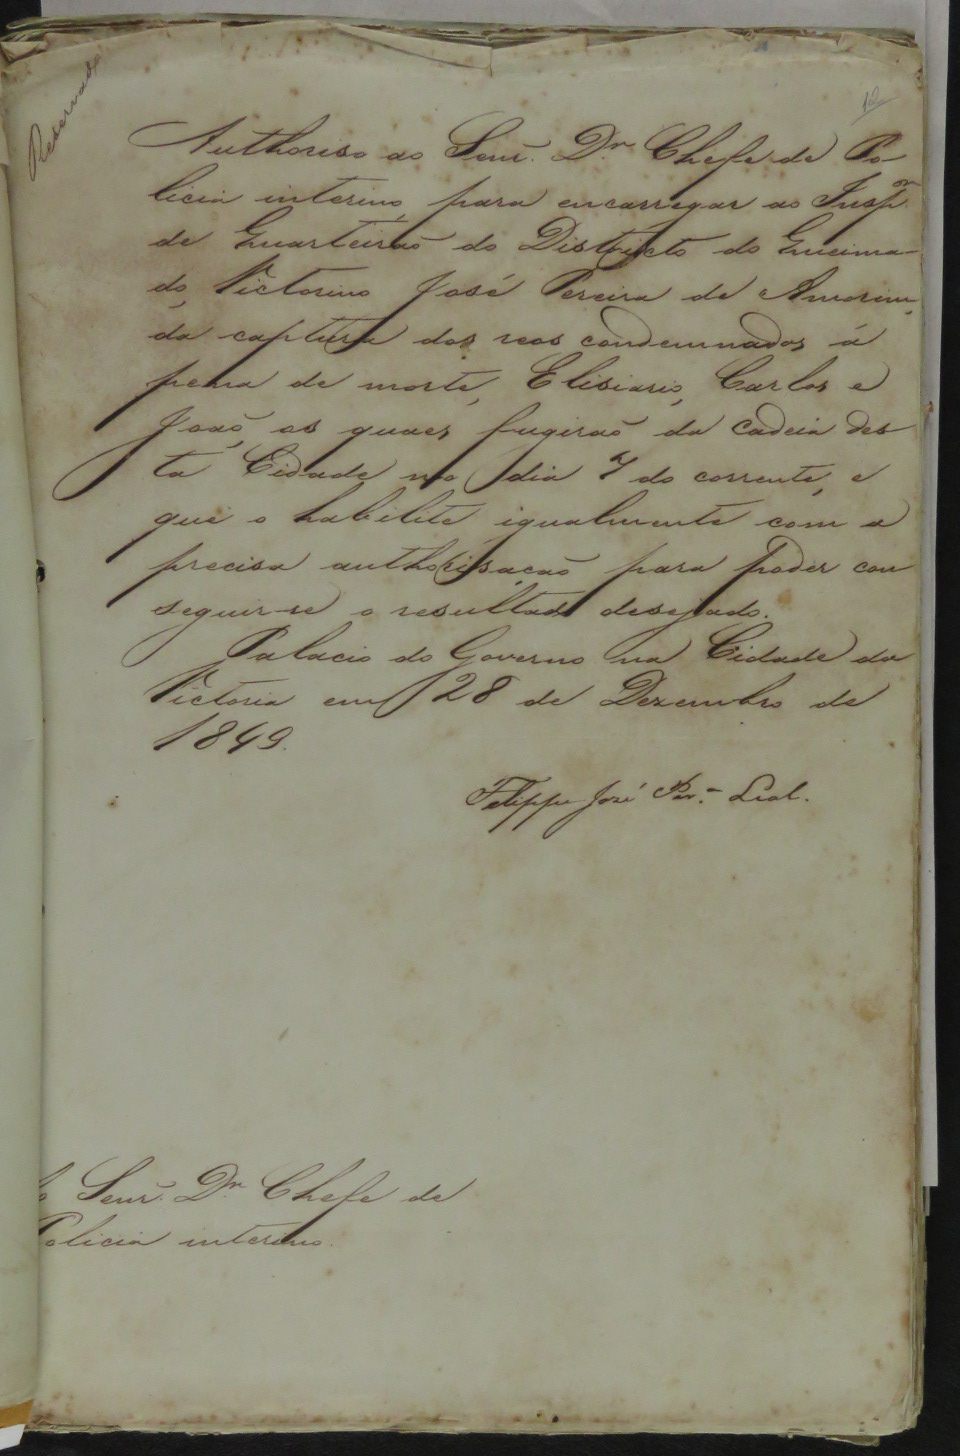 Reservado
12
Authoriso ao Senr. Dr. Chefe de Po-
licia interino, para encarregar ao Inspr.
de Quarteirão do Districto do Queima-
do, Victorino José Pereira de Amorim,
da captura dos reos condemnados á
pena de morte, Elisiario, Carlos e
João, os quaes fugirão da cadeia des
ta Cidade no dia 7 do corrente, e
que o habilite igualmente com a
precisa authorisação para poder con
seguir-se o resultado desejado.
Palacio do Governo na Cidade da
Victoria em 28 de Dezembro de
1849.
Filippe José Per.ª Leal.
Ao Senr. Dr. Chefe de
Policia interino.